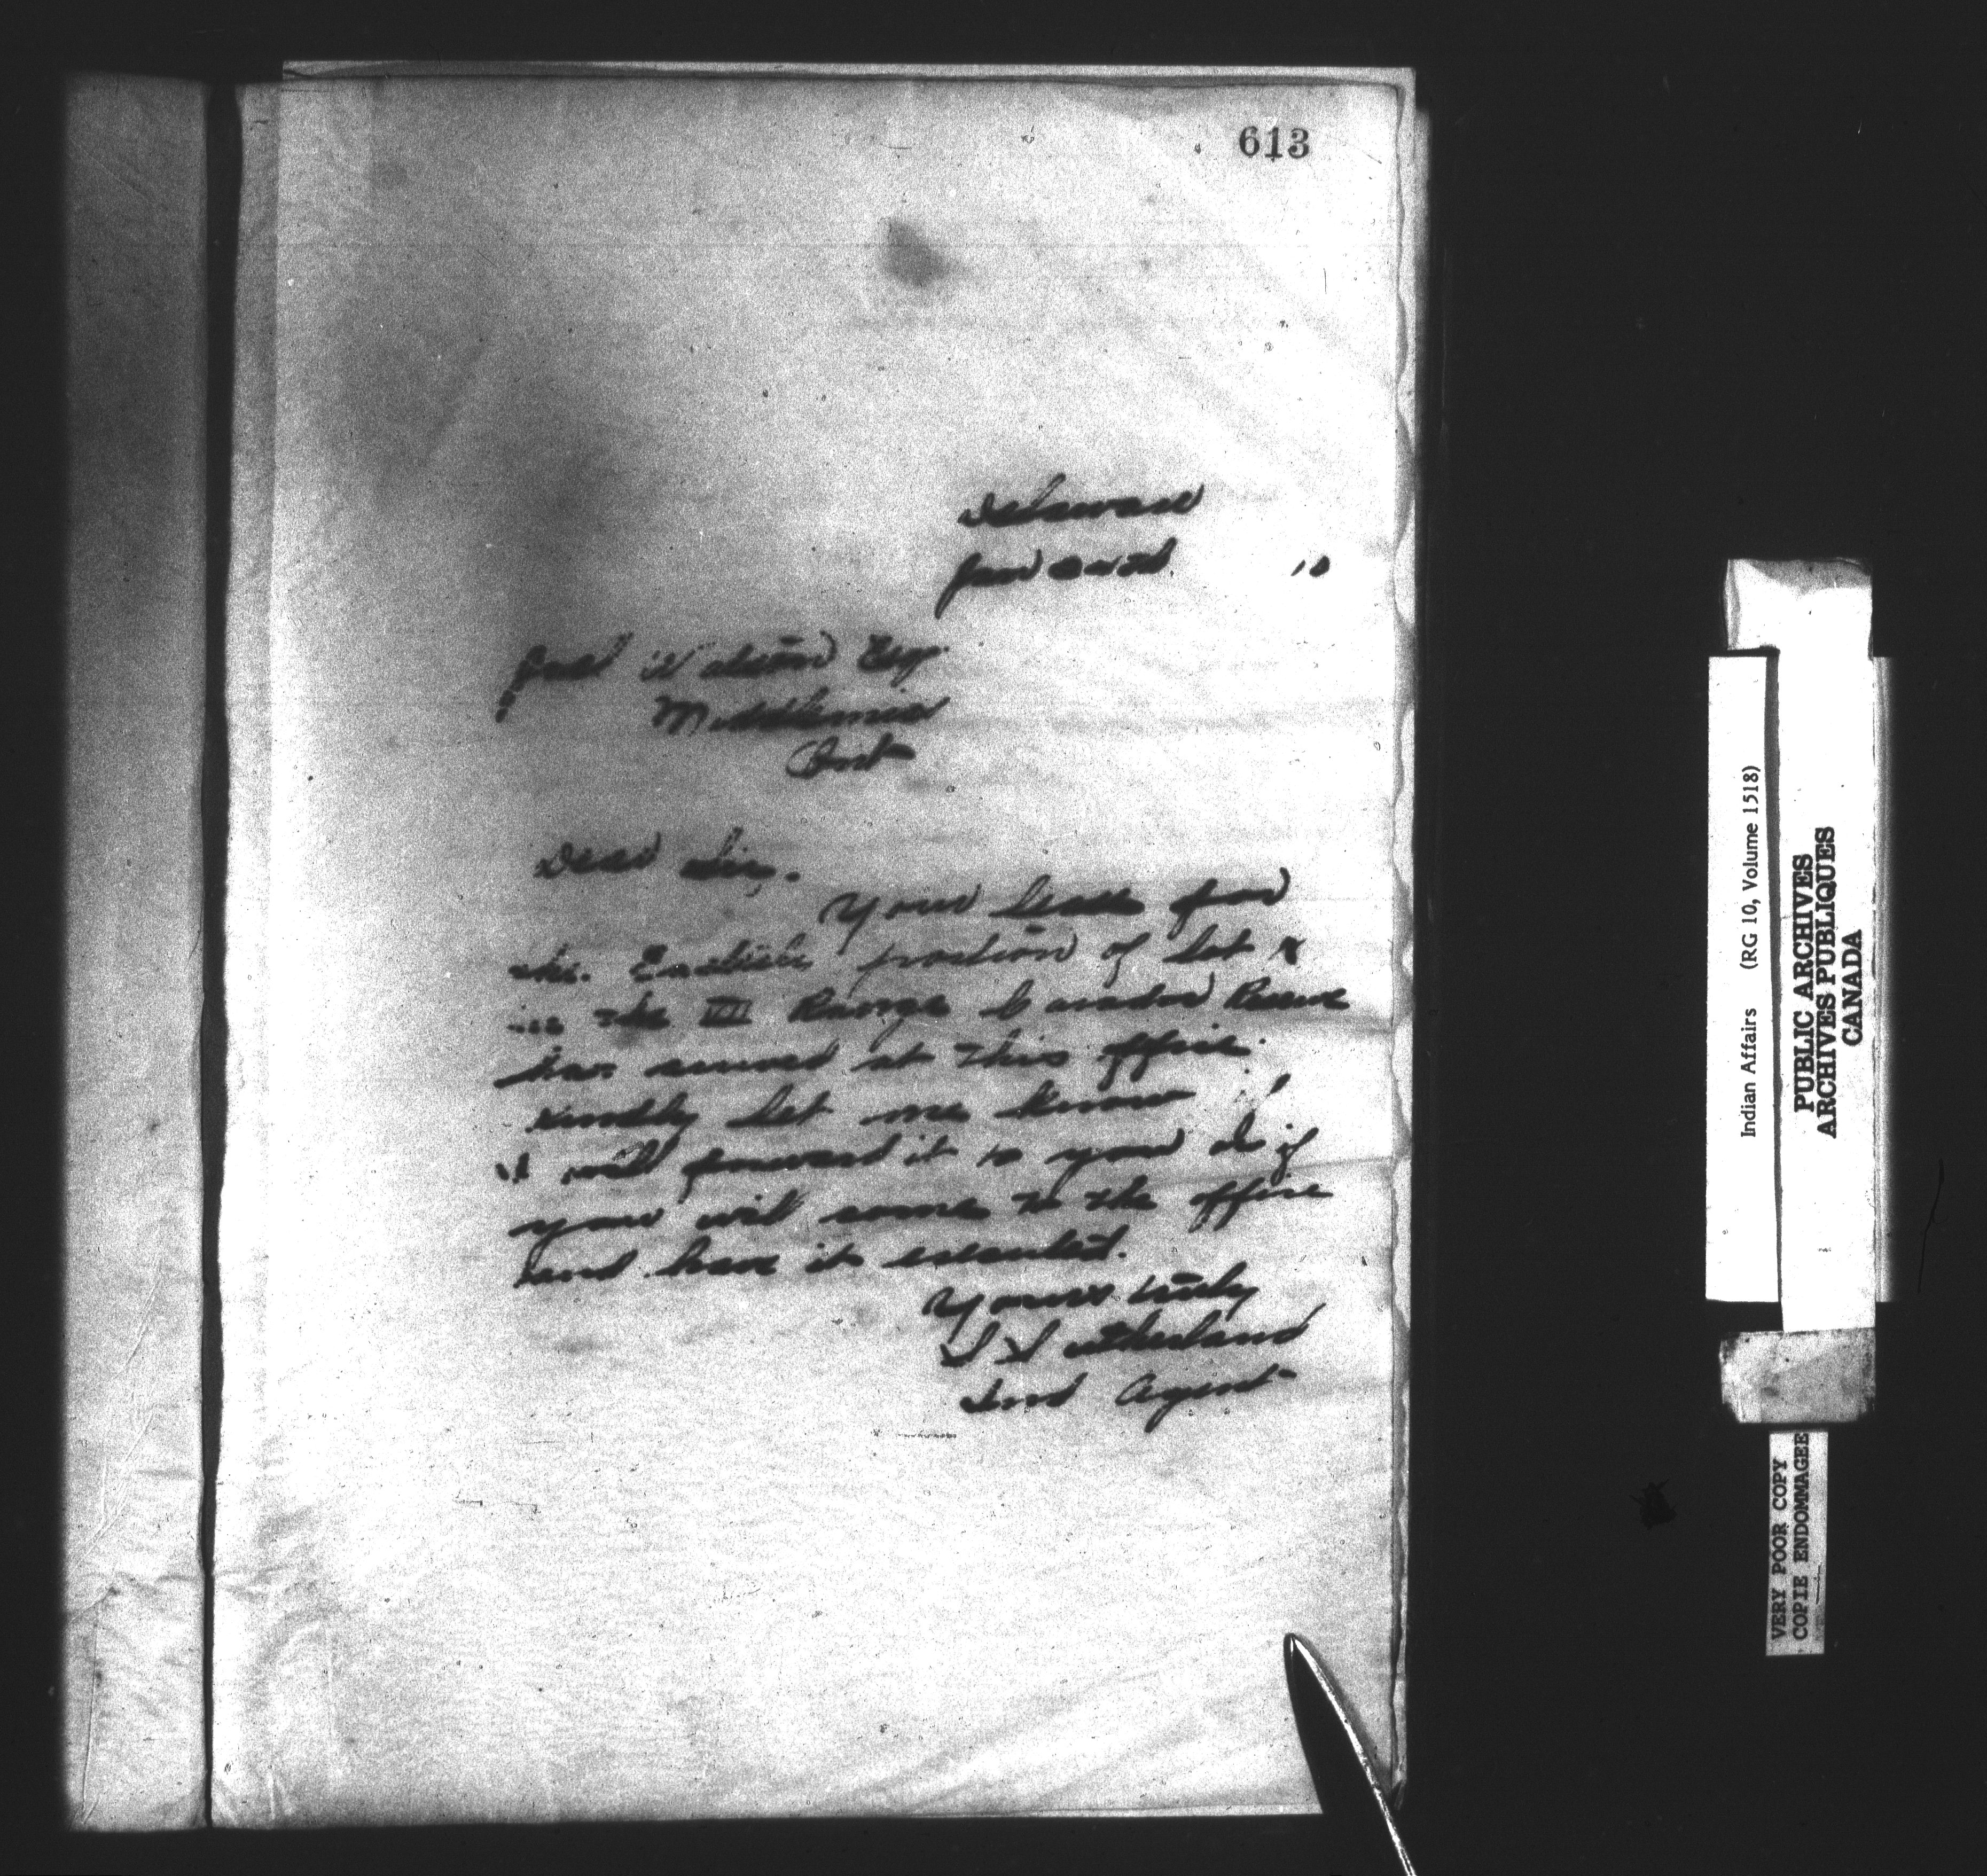 613
Delaware
Jan 10
Esq.
Middlemiss
Ont
Dear Sir.
Your lease for
the portion of lot
in the VII Range Caradoc Reserve
has arrived at this office.
Kindly let me know if
I will forward it to you or if
you will come to the office
and have it executed.
Yours truly
S Sutherland
Ind Agent
Indian Affairs (RG 10, Volume 1518)
PUBLIC ARCHIVES
ARCHIVES PUBLIQUES
CANADA
VERY POOR COPY
COPIE ENDOMMAGEE